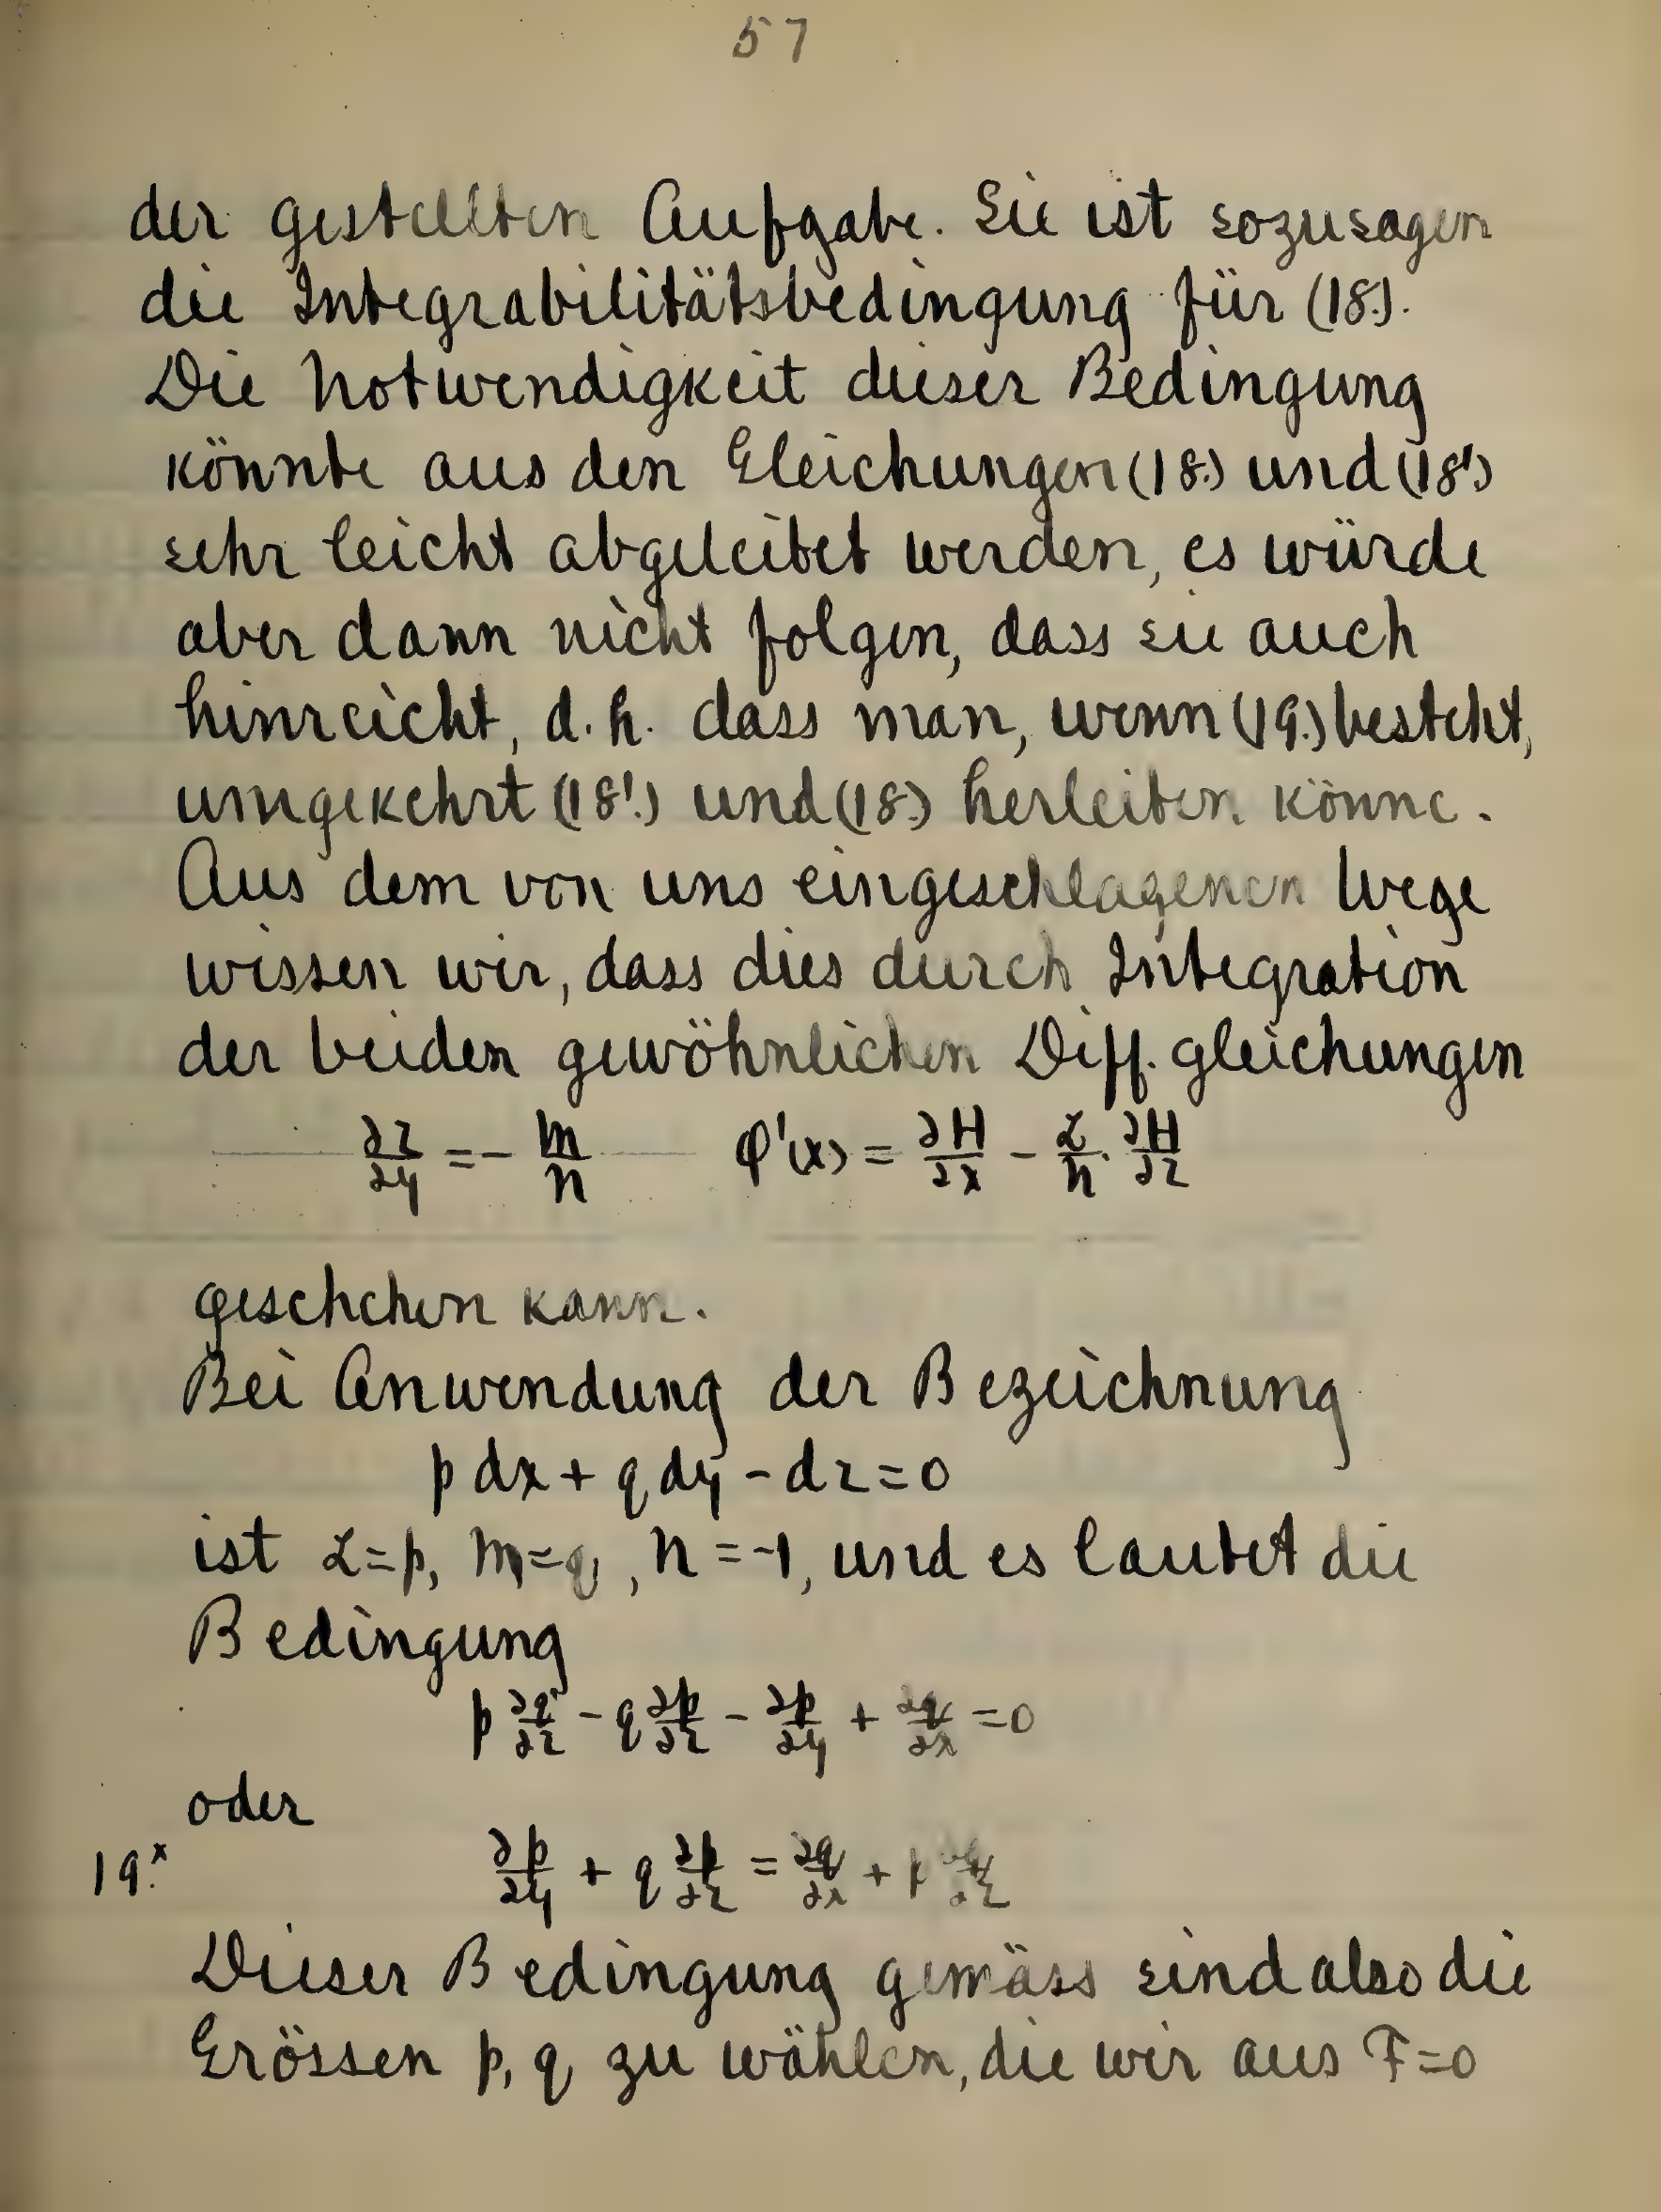 57
der gestellten Aufgabe. Sie ist sozusagen
die Integrabilitätsbedingung für (18.).
Die Notwendigkeit dieser Bedingung
könnte aus den Gleichungen (18.) und (18'.)
sehr leicht abgeleitet werden, es würde
aber dann nicht folgen, dass sie auch
hinreicht, d. h. dass man, wenn (19.) besteht,
umgekehrt (18'.) und (18.) herleiten könne.
Aus dem von uns eingeschlagenen Wege
wissen wir, dass dies durch Integration
der beiden gewöhnlichen Diff. gleichungen
∂z/∂y = - M/N φ'(x) = ∂H/∂x - L/N · ∂H/∂z
geschehen kann.
Bei Anwendung der Bezeichnung
p dx + q dy - dz = 0
ist L=p, M=q, N=-1, und es lautet die
Bedingung
p ∂q/∂z - q ∂p/∂z - ∂p/∂y + ∂q/∂x = 0
oder
19.x ∂p/∂y + q ∂p/∂z = ∂q/∂x + p ∂q/∂z
Dieser Bedingung gemäss sind also die
Grössen p, q zu wählen, die wir aus F=0